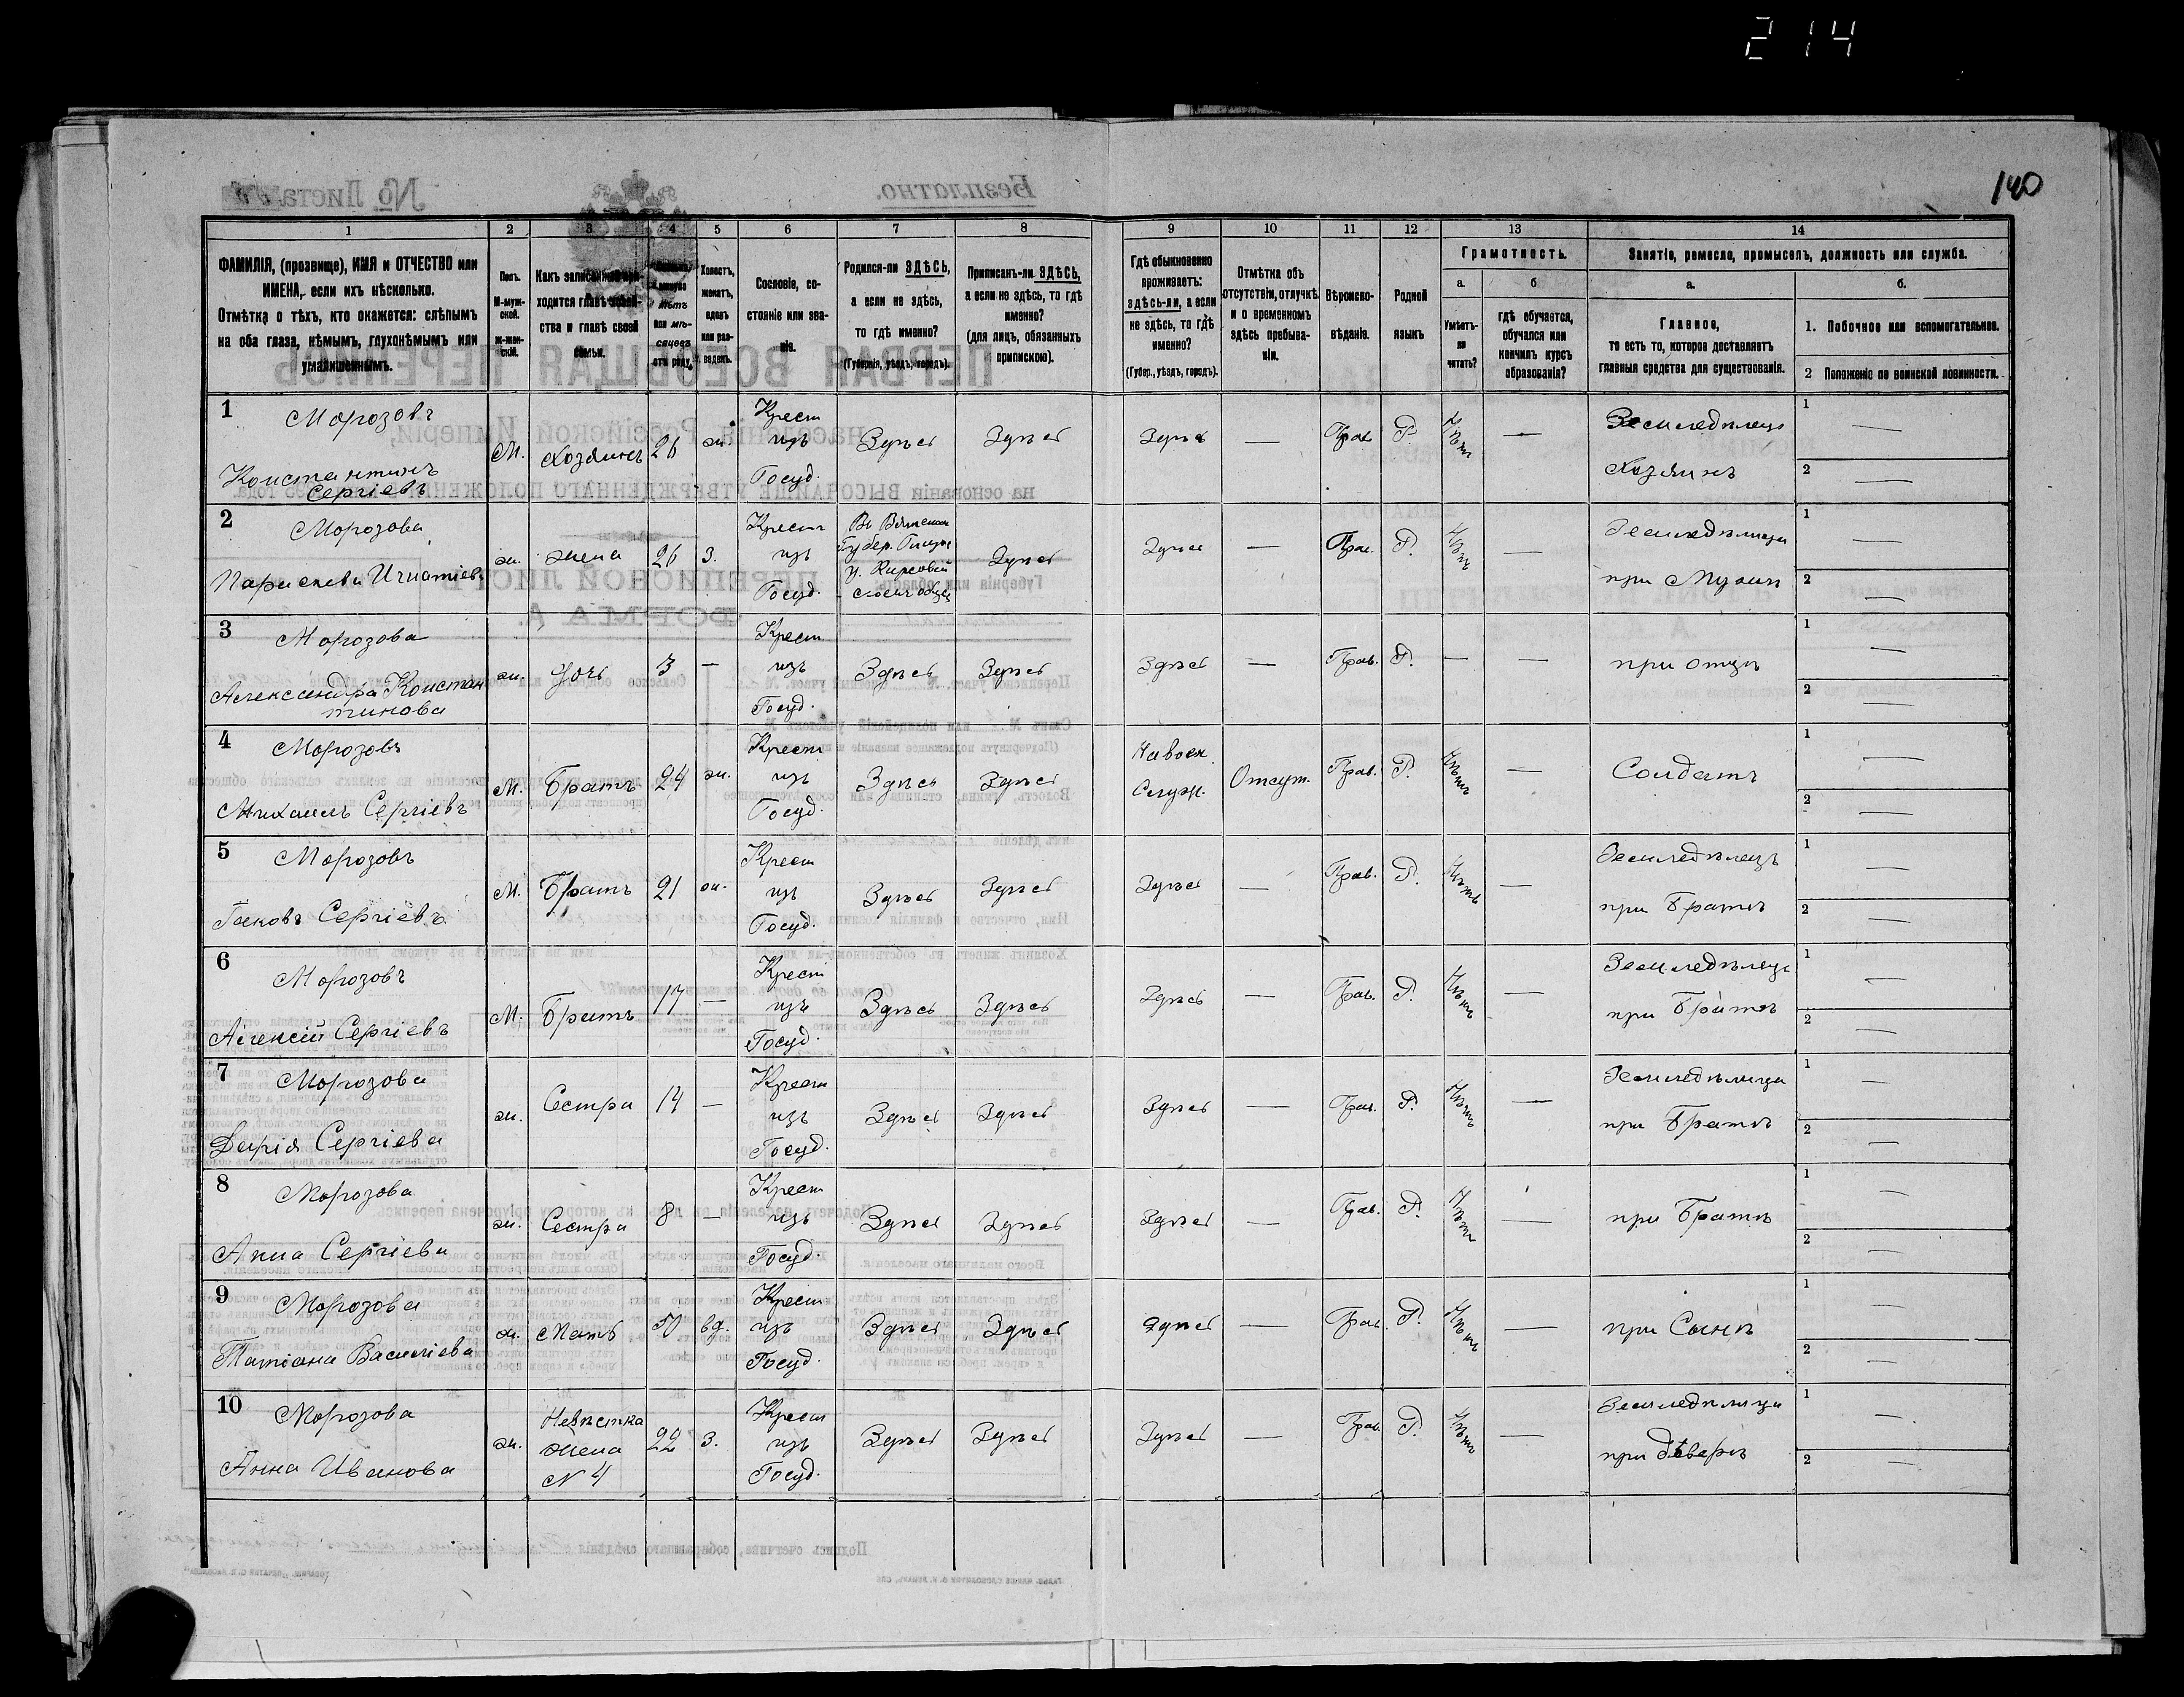 214
140
1 2 3 4 5 6 7 8 9 10 11 12 13 14
ФАМИЛІЯ, (прозвище), ИМЯ и ОТЧЕСТВО или
ИМЕНА, если ихъ нѣсколько.
Отмѣтка о тѣхъ, кто окажется: слѣпымъ
на оба глаза, нѣмымъ, глухонѣмымъ или
умалишеннымъ.
Полъ.
М-муж-
ской.
Ж-жен-
скій.
Какъ записанный при-
ходится главѣ хозяй-
ства и главѣ своей
семьи.
минуло
лѣтъ
или мѣ-
сяцевъ
отъ роду.
Холостъ,
женатъ,
вдовъ
или раз-
веденъ.
Сословіе, со-
стояніе или зва-
ніе.
Родился-ли ЗДѢСЬ,
а если не здѣсь,
то гдѣ именно?
(Губернія, уѣздъ, городъ).
Приписанъ-ли ЗДѢСЬ,
а если не здѣсь, то гдѣ
именно?
(для лицъ, обязанныхъ
припискою).
Гдѣ обыкновенно
проживаетъ:
здѣсь-ли, а если
не здѣсь, то гдѣ
именно?
(Губер., уѣздъ, городъ).
Отмѣтка объ
отсутствіи, отлучкѣ
и о временномъ
здѣсь пребыва-
ніи.
Вѣроиспо-
вѣданіе.
Родной
языкъ
Грамотность.
а.
Умѣетъ-
ли
читать?
б
гдѣ обучается,
обучался или
кончилъ курсъ
образованія?
Занятіе, ремесло, промыселъ, должность или служба.
а.
Главное,
то есть то, которое доставляетъ
главныя средства для существованія.
б.
1. Побочное или вспомогательное.
2 Положеніе по воинской повинности.
1 Морозовъ
Константинъ
Сергіевъ
М. Хозяинъ 26 ж.
Крест
изъ
Госуд.
Здѣсь Здѣсь Здѣсь — Прав. Р. Нѣтъ —
Земледѣлецъ
Хозяинъ
1 —
2 —
2 Морозова
Парасковья Игнатіева
ж. Жена 26 З.
Крест
изъ
Госуд.
Въ Вятской
Губер. Глаз.
у.
Здѣсь Здѣсь — Прав. Р. Нѣтъ —
Земледѣлица
при Мужѣ
1 —
2 —
3 Морозова
Александра Констан
тинова
ж. Дочь 3 —
Крест
изъ
Госуд.
Здѣсь Здѣсь Здѣсь — Прав. Р. — —
при отцѣ
1 —
2 —
4 Морозовъ
Михаилъ Сергіевъ
М. Братъ 24 ж.
Крест
изъ
Госуд.
Здѣсь Здѣсь
На воен.
Служ.
Отсут. Прав. Р. Нѣтъ —
Солдатъ
1 —
2 —
5 Морозовъ
Іаковъ Сергіевъ
М. Братъ 21 ж.
Крест
изъ
Госуд.
Здѣсь Здѣсь Здѣсь — Прав. Р. Нѣтъ —
Земледѣлецъ
при Братѣ
1 —
2 —
6 Морозовъ
Алексій Сергіевъ
М. Братъ 17 —
Крест
изъ
Госуд.
Здѣсь Здѣсь Здѣсь — Прав. Р. Нѣтъ —
Земледѣлецъ
при Братѣ
1 —
2 —
7 Морозова
Дарія Сергіева
ж. Сестра 14 —
Крест
изъ
Госуд.
Здѣсь Здѣсь Здѣсь — Прав. Р. Нѣтъ —
Земледѣлица
при Братѣ
1 —
2 —
8 Морозова
Анна Сергіева
ж. Сестра 8 —
Крест
изъ
Госуд.
Здѣсь Здѣсь Здѣсь — Прав. Р. Нѣтъ —
при Братѣ
1 —
2 —
9 Морозова
Татіана Василіева
ж. Мать 50 вд.
Крест
изъ
Госуд.
Здѣсь Здѣсь Здѣсь — Прав. Р. Нѣтъ —
при Сынѣ
1 —
2 —
10 Морозова
Анна Иванова
ж.
Невѣстка
Жена
N 4
22 З.
Крест
изъ
Госуд.
Здѣсь Здѣсь Здѣсь — Прав. Р. Нѣтъ —
Земледѣлица
при дѣверѣ
1 —
2 —